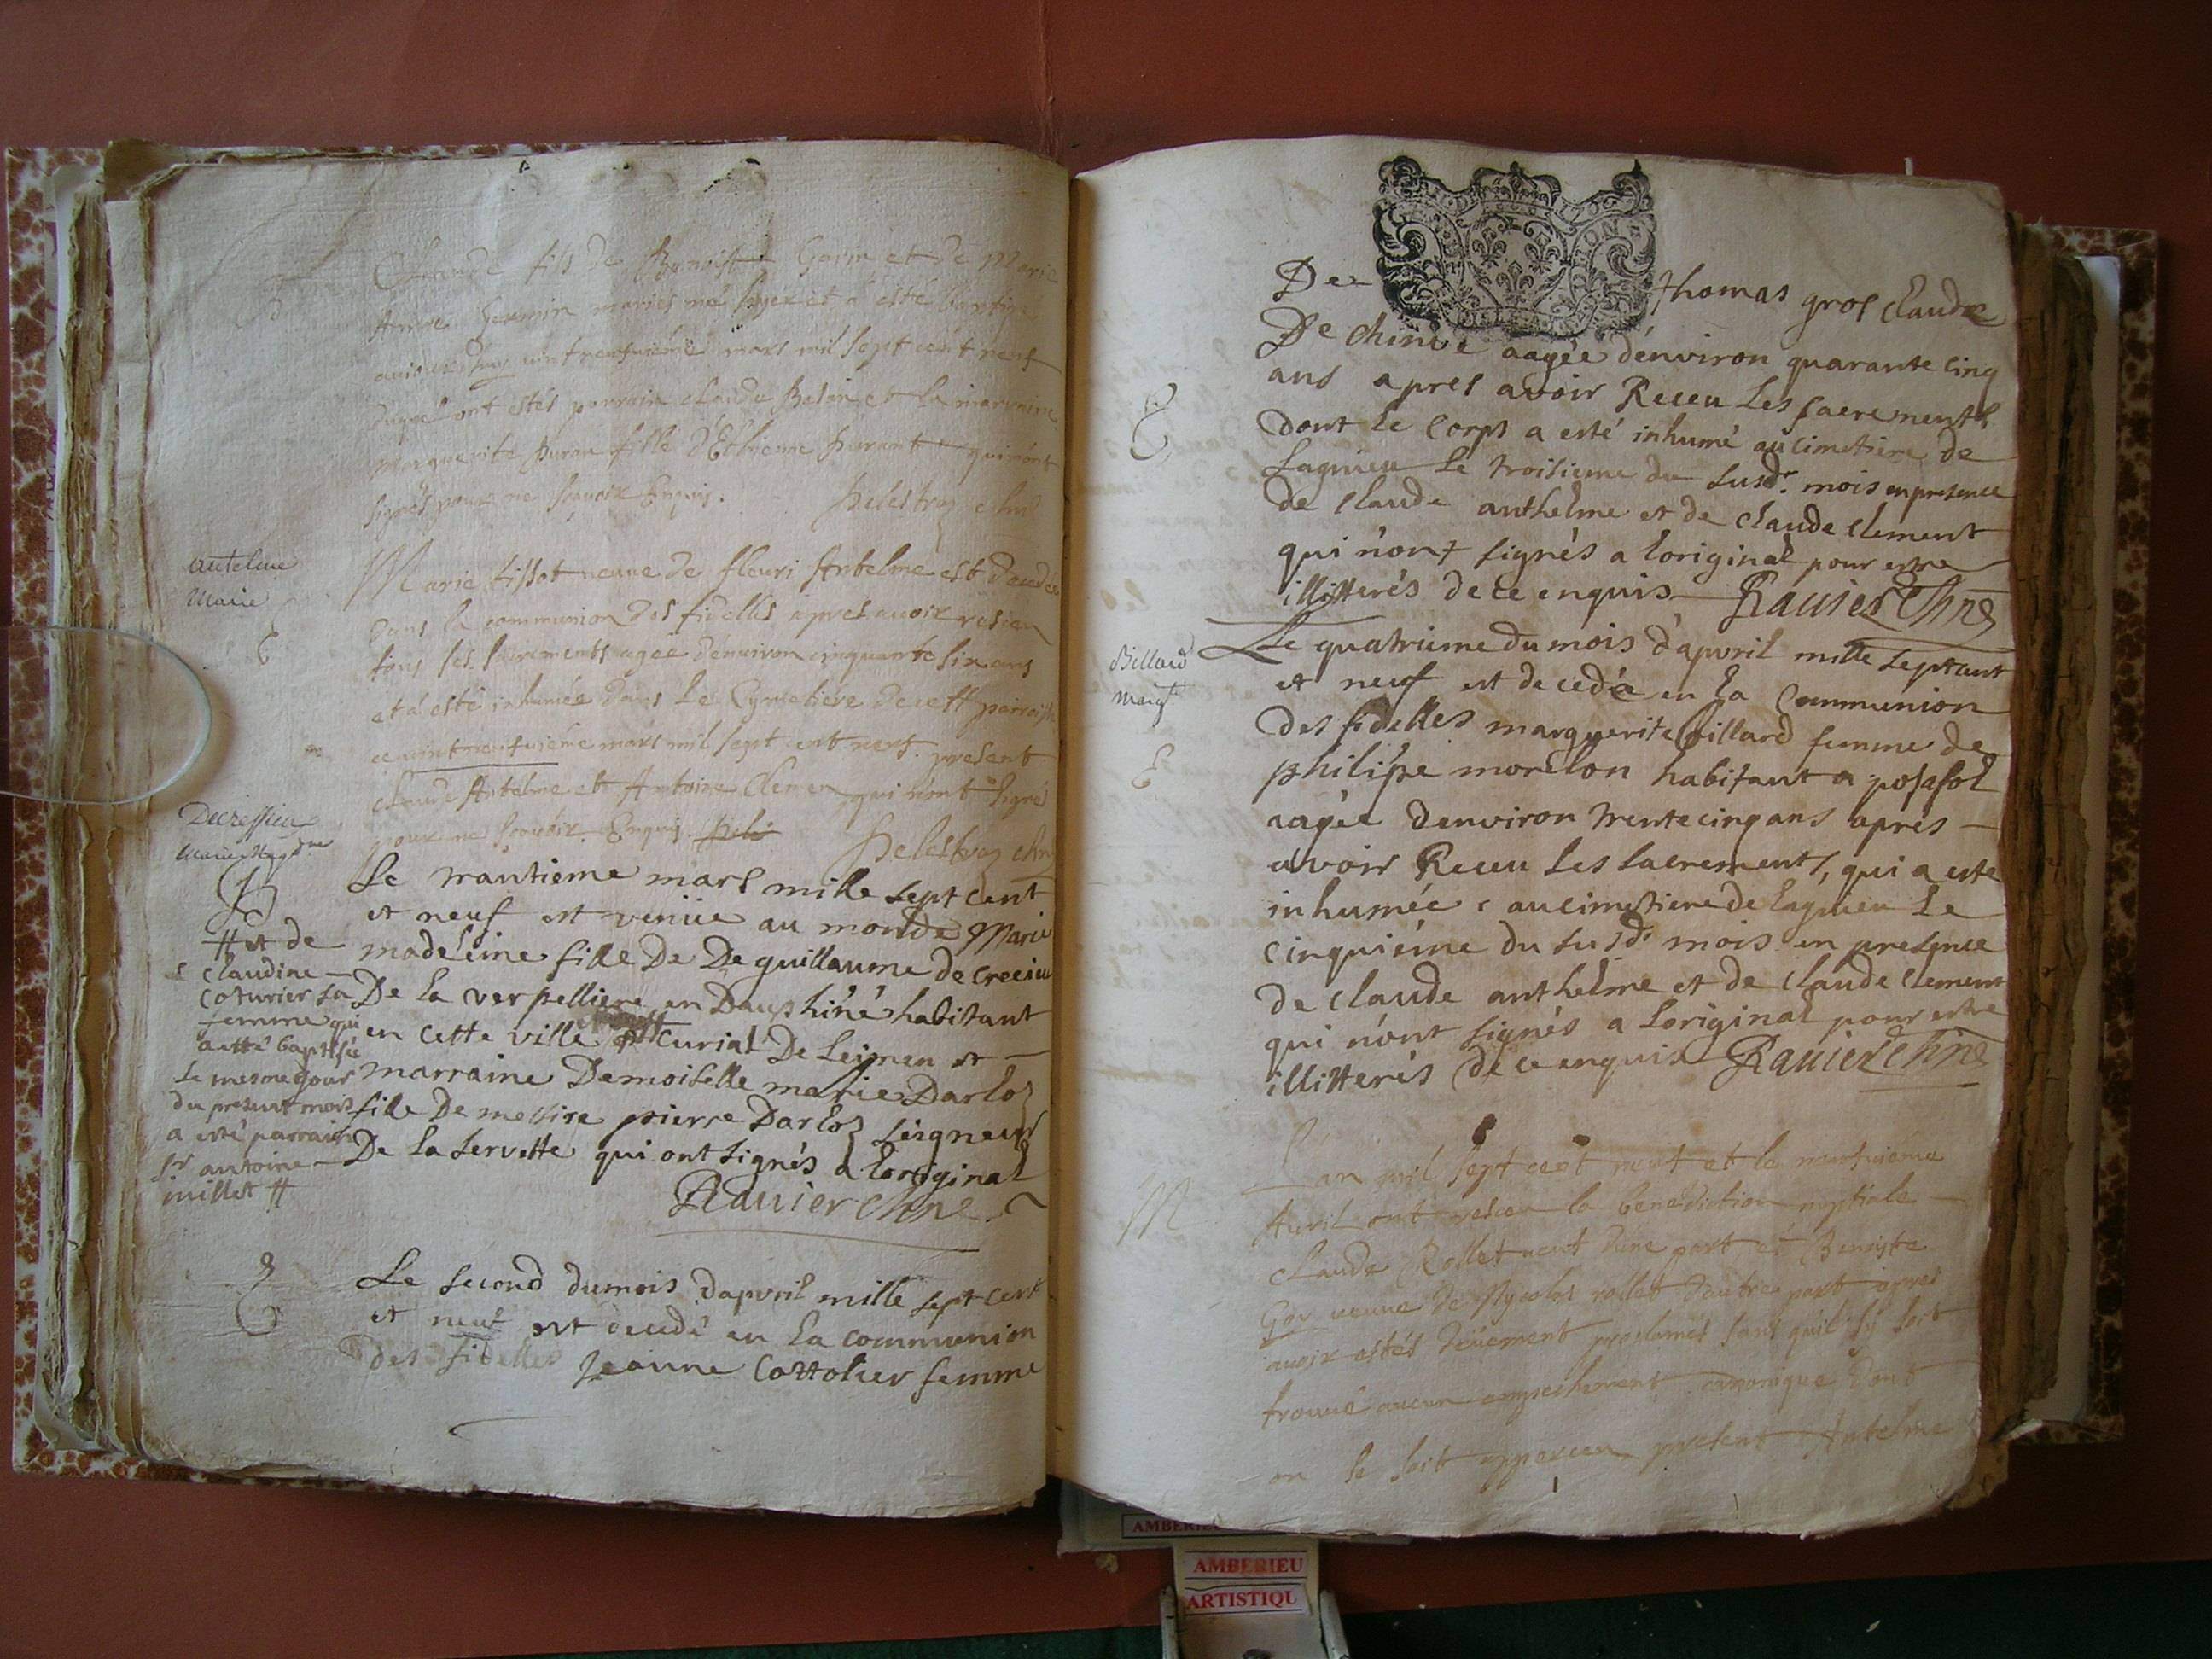 Claude fils de Benoist Gorin et de Marie
Anne Germin mariés né hyer et a esté baptizé
aujourdhuy vint neufvieme mars mil sept cent neuf
duquel ont estés parrain claude Balin et la marraine
Marguerite fille d'Estienne qui n'ont
signés pour ne sçavoir Enquis.
antelme
Marie
Marie tissot veuve de fleuri Antelme est decedée
dans la communion des fidelles apres avoir reseu
tous ses sacrements agée denviron cinquante six ans
et a esté inhumée dans le Cymetiere de cett parroisse
ce vint neufvieme mars mil sept cent neuf present
claude Antelme et Antoine Clemen qui n'ont signés
pour ne sçavoir Enquis.
Decressieu
Marie Magdne
B
Le trantieme mars mille sept cent
et neuf est veniie au monde Marie
madeleine fille De De guillaume de crecieu
De la verpelliere en Dauphiné habitant
en cette ville # Curial De Leimen et
marraine Demoiselle marie Darloz
fille De messire pierre Darloz seigneur
De la servette qui ont signés a loriginal
Ravier
# et de
claudine
coturier sa
femme qui
a esté baptisée
Le mesme jour
du present mois
a esté parrain
sr antoine
millet #
Le second dumois dapvril mille sept cent
et neuf est decedé en la communion
des fidelles Jeanne Cottolier femme
De thomas gros claude
De chinve aagée d'environ quarante cinq
ans apres avoir Receu Les sacrements
dont le corps a esté inhumé au cimetiere de
Lagnieu le troisieme du susdt. mois en presence
de claude anthelme et de claude clement
qui n'ont signés a loriginal pour estre
illitterés de ce enquis Ravier
Billard
margte
Le quatrieme du mois d'apvril mille septcent
et neuf est decedée en la Communion
des fidelles marguerite billard femme de
philipe morelon habitant a posafol
aagée denviron trente cinq ans aprés
avoir Receu Les sacrements, qui a esté
inhumée au cimetiere de Lagnieu Le
cinquiéme du susdt mois en presence
de claude anthelme et de claude clement
qui n'ont signés a Loriginal pour estre
illitterés de ce enquis Ravier
M
Lan mil sept cent neuf et le neufvieme
Avril ont reseu la benediction nuptiale
claude Rollet d'une part et Benoiste
Goy veuve de Nycolas rollet d'autre part apres
avoir estés deüement proclamés sans quil sy soit
trouvé aucun empeschement canonique dont
on se soit apperceu present Antelme
AMBERIEU
AMBERIEU
ARTISTIQU